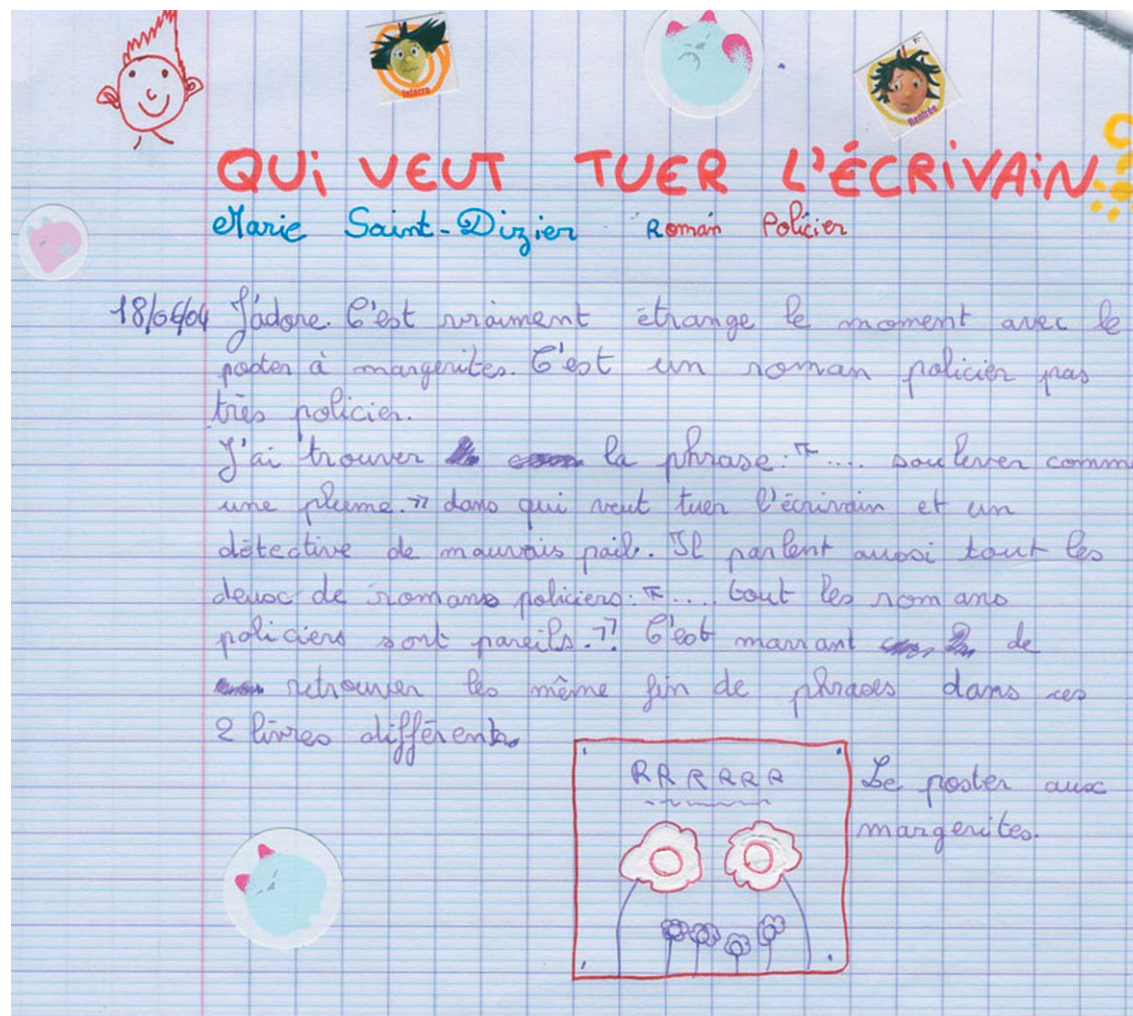 Interro
Rentrée
QUi VEUT TUER L'ÉCRiVAiN ?
Marie Saint-Dizier Roman Policier
18/04/04 J'adore. C'est vraiment étrange le moment avec le
poster à margerites. C'est un roman policier pas
très policier.
J'ai trouver la phrase : ".... soulever comme
une plume." dans qui veut tuer l'écrivain et un
détective de mauvais poil. Il parlent aussi tout les
deux de romans policiers : ".... tout les romans
policiers sont pareils."! C'est marrant de
retrouver les même fin de phrases dans ces
2 livres différents.
RRRRRR
Le poster aux
margerites.